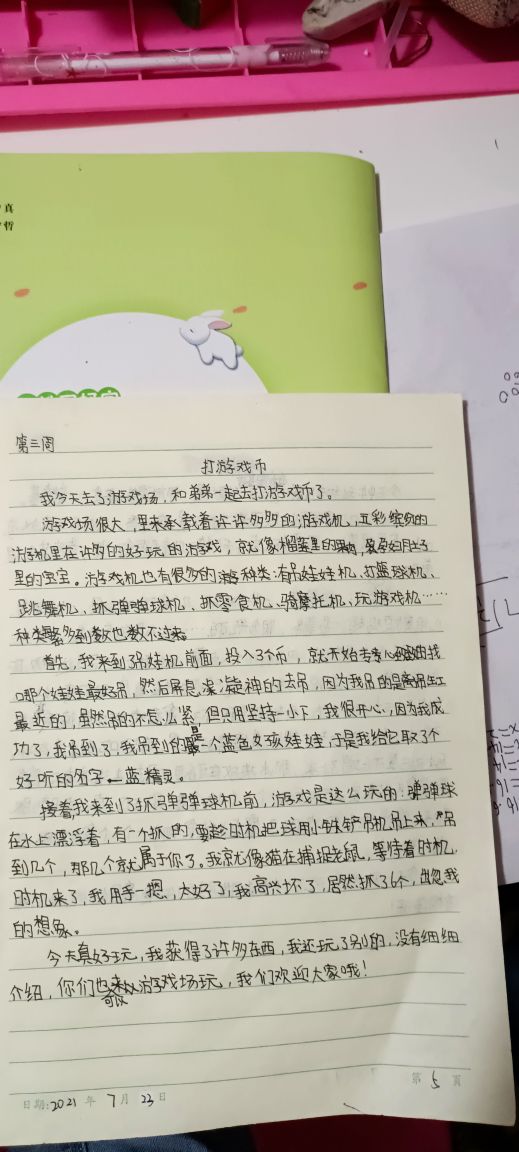 真
哲
第三周
打游戏币
我今天去了游戏场，和弟弟一起去打游戏币了。
游戏场很大，里来承载着许许多多的游戏机，五彩缤纷的
游戏机里在许多的好玩的游戏，就像榴蓝里的果肉，
里的宝宝。游戏机也有很多的游种类：有吊娃娃机、打蓝球机、
跳舞机、抓弹弹球机、抓零食机、骑摩托机、玩游戏机……
种类多到数也数不过来。
首先，我来到了吊娃机前面，投入3个币，就开始专心找
哪个娃娃最好吊，然后屏息凝神的去吊，因为我吊的是离吊
最近的，虽然吊的不怎么紧，但只用坚持一小下，我很开心，因为我成
功了，我吊到了，我吊到的是一个蓝色女孩娃娃，于是我给它取了个
好听的名字—蓝精灵。
接着我来到了抓弹弹球机前，游戏是这么玩的：弹弹球
在水上漂浮着，有一个抓的，要趁时机把球用小铲吊机吊上来，"吊
到几个，那几个就属于你了。我就像猫在捕捉老鼠，等待着时机，
时机来了，我用手一摁，太好了，我高兴坏了，居然抓了6个，出忽我
的想象。
今天真好玩，我获得了许多东西，我还玩了别的，没有细细
介绍，你们也可以游戏场玩，我们欢迎大家哦！
日期：2021年 7月 23日
第 5 页